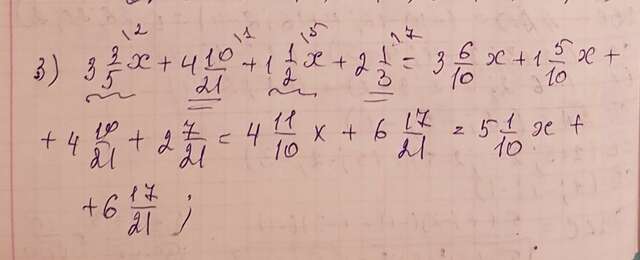 3) 3 3/5 x + 4 10/21 + 1 1/2 x + 2 1/3 = 3 6/10 x + 1 5/10 x +
+ 4 10/21 + 2 7/21 = 4 11/10 x + 6 17/21 = 5 1/10 x +
+ 6 17/21 ;